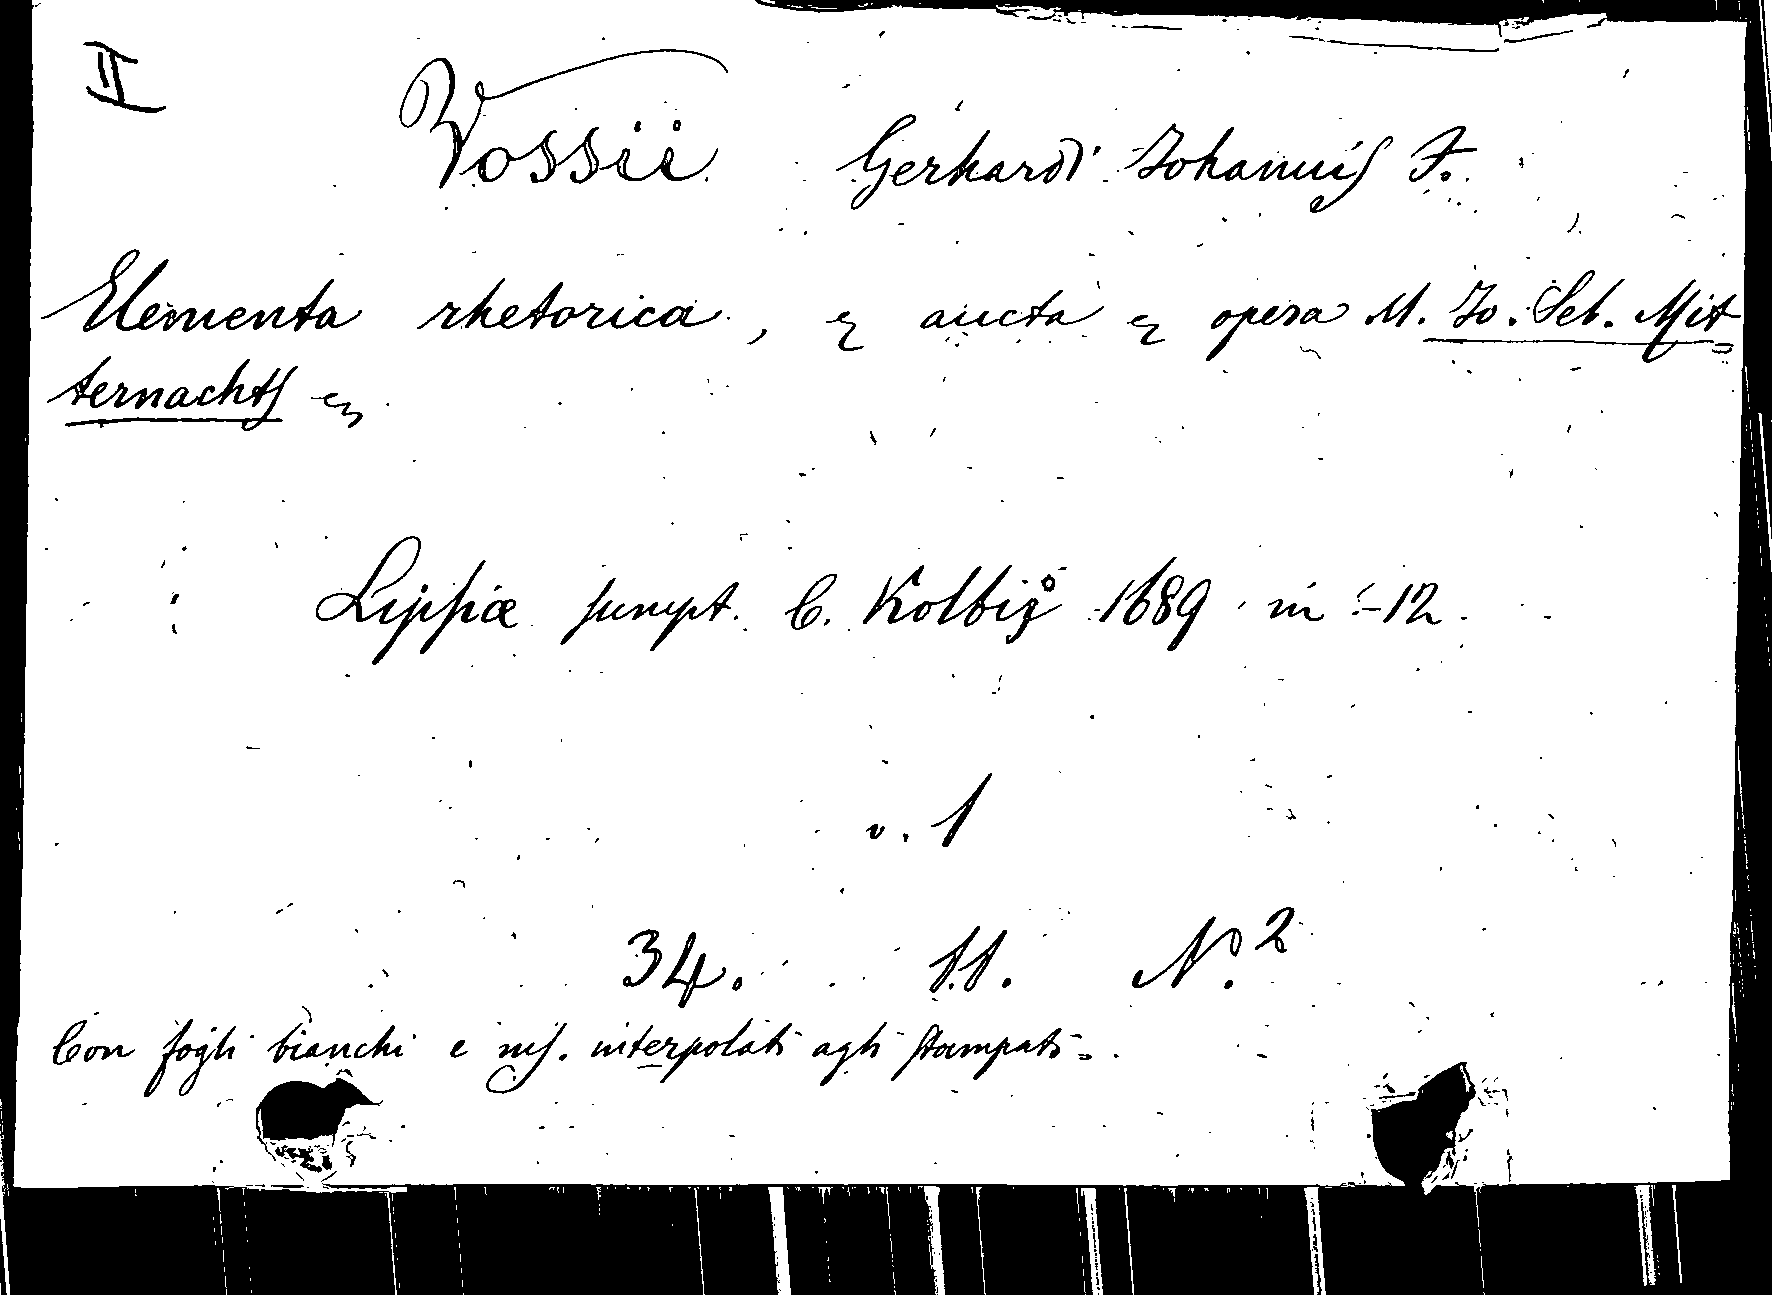 II
Vossii Gerhardi Johannis F.
Elementa rhetorica, & aucta & opera M. Jo. Seb. Mit=
ternachts &
Lipsiæ sumpt. C. Kolbiz 1689 in -12
v. 1
34. 11. N.2
Con fogli bianchi e ms. interpolati agli stampati.